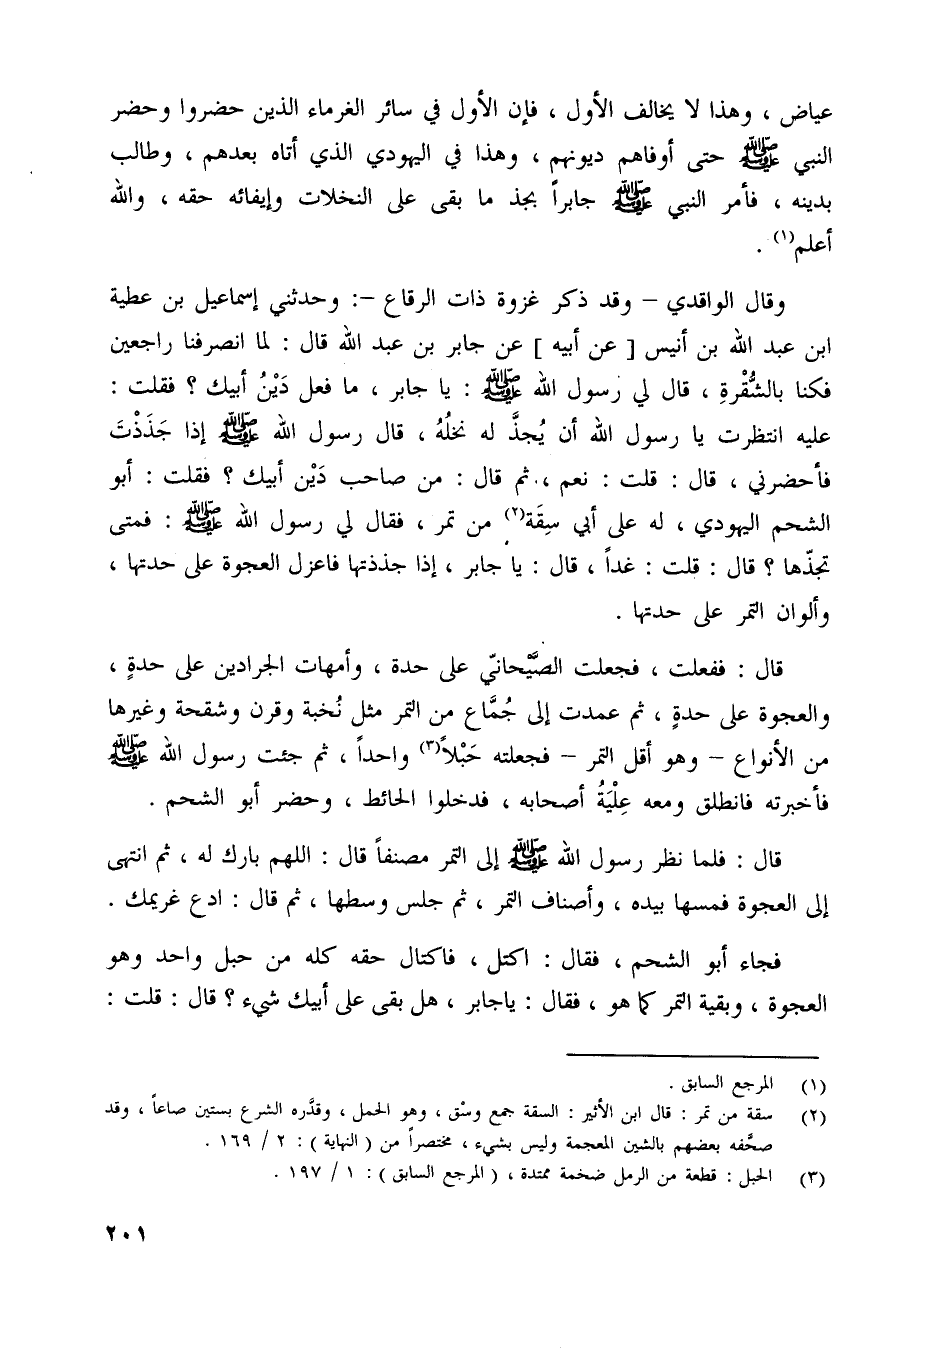 عياض ، وهذا لا يخالف الأول ، فإن الأول في سائر الغرماء الذين حضروا وحضر
النبي ﷺ حتى أوفاهم ديونهم ، وهذا في اليهودي الذي أتاه بعدهم ، وطالب
بدينه ، فأمر النبي ﷺ جابراً بجذ ما بقى على النخلات وإيفائه حقه ، والله
أعلم(١) .
وقال الواقدي – وقد ذكر غزوة ذات الرقاع –: وحدثني إسماعيل بن عطية
ابن عبد الله بن أنيس [ عن أبيه ] عن جابر بن عبد الله قال : لما انصرفنا راجعين
فكنا بالشُّقْرةِ ، قال لي رسول الله ﷺ : يا جابر ، ما فعل دَيْنُ أبيك ؟ فقلت :
عليه انتظرت يا رسول الله أن يُجذَّ له نخلُهُ ، قال رسول الله ﷺ إذا جَذَذْتَ
فأحضرني ، قال : قلت : نعم ، ثم قال : من صاحب دَيْن أبيك ؟ فقلت : أبو
الشحم اليهودي ، له على أبي سِقَة(٢) من تمر ، فقال لي رسول الله ﷺ : فمتى
تجذّها ؟ قال : قلت : غداً ، قال : يا جابر ، إذا جذذتها فاعزل العجوة على حدتها ،
وألوان التمر على حدتها .
قال : ففعلت ، فجعلت الصَّيْحانيّ على حدة ، وأمهات الجرادين على حدةٍ ،
والعجوة على حدةٍ ، ثم عمدت إلى جُمَّاع من التمر مثل نُخبة وقرن وشقحة وغيرها
من الأنواع – وهو أقل التمر – فجعلته حَبْلاً(٣) واحداً ، ثم جئت رسول الله ﷺ
فأخبرته فانطلق ومعه عِلْيَةُ أصحابه ، فدخلوا الحائط ، وحضر أبو الشحم .
قال : فلما نظر رسول الله ﷺ إلى التمر مصنفاً قال : اللهم بارك له ، ثم انتهى
إلى العجوة فمسها بيده ، وأصناف التمر ، ثم جلس وسطها ، ثم قال : ادع غريمك .
فجاء أبو الشحم ، فقال : اكتل ، فاكتال حقه كله من حبل واحد وهو
العجوة ، وبقية التمر كما هو ، فقال : ياجابر ، هل بقى على أبيك شيء ؟ قال : قلت :
(١) المرجع السابق .
(٢) سقة من تمر : قال ابن الأثير : السقة جمع وسْق ، وهو الحمل ، وقدَّره الشرع بستين صاعاً ، وقد
صحَّفه بعضهم بالشين المعجمة وليس بشيء ، مختصراً من ( النهاية ) : ٢ / ١٦٩ .
(٣) الحبل : قطعة من الرمل ضخمة ممتدة ، ( المرجع السابق ) : ١ / ١٩٧ .
٢٠١